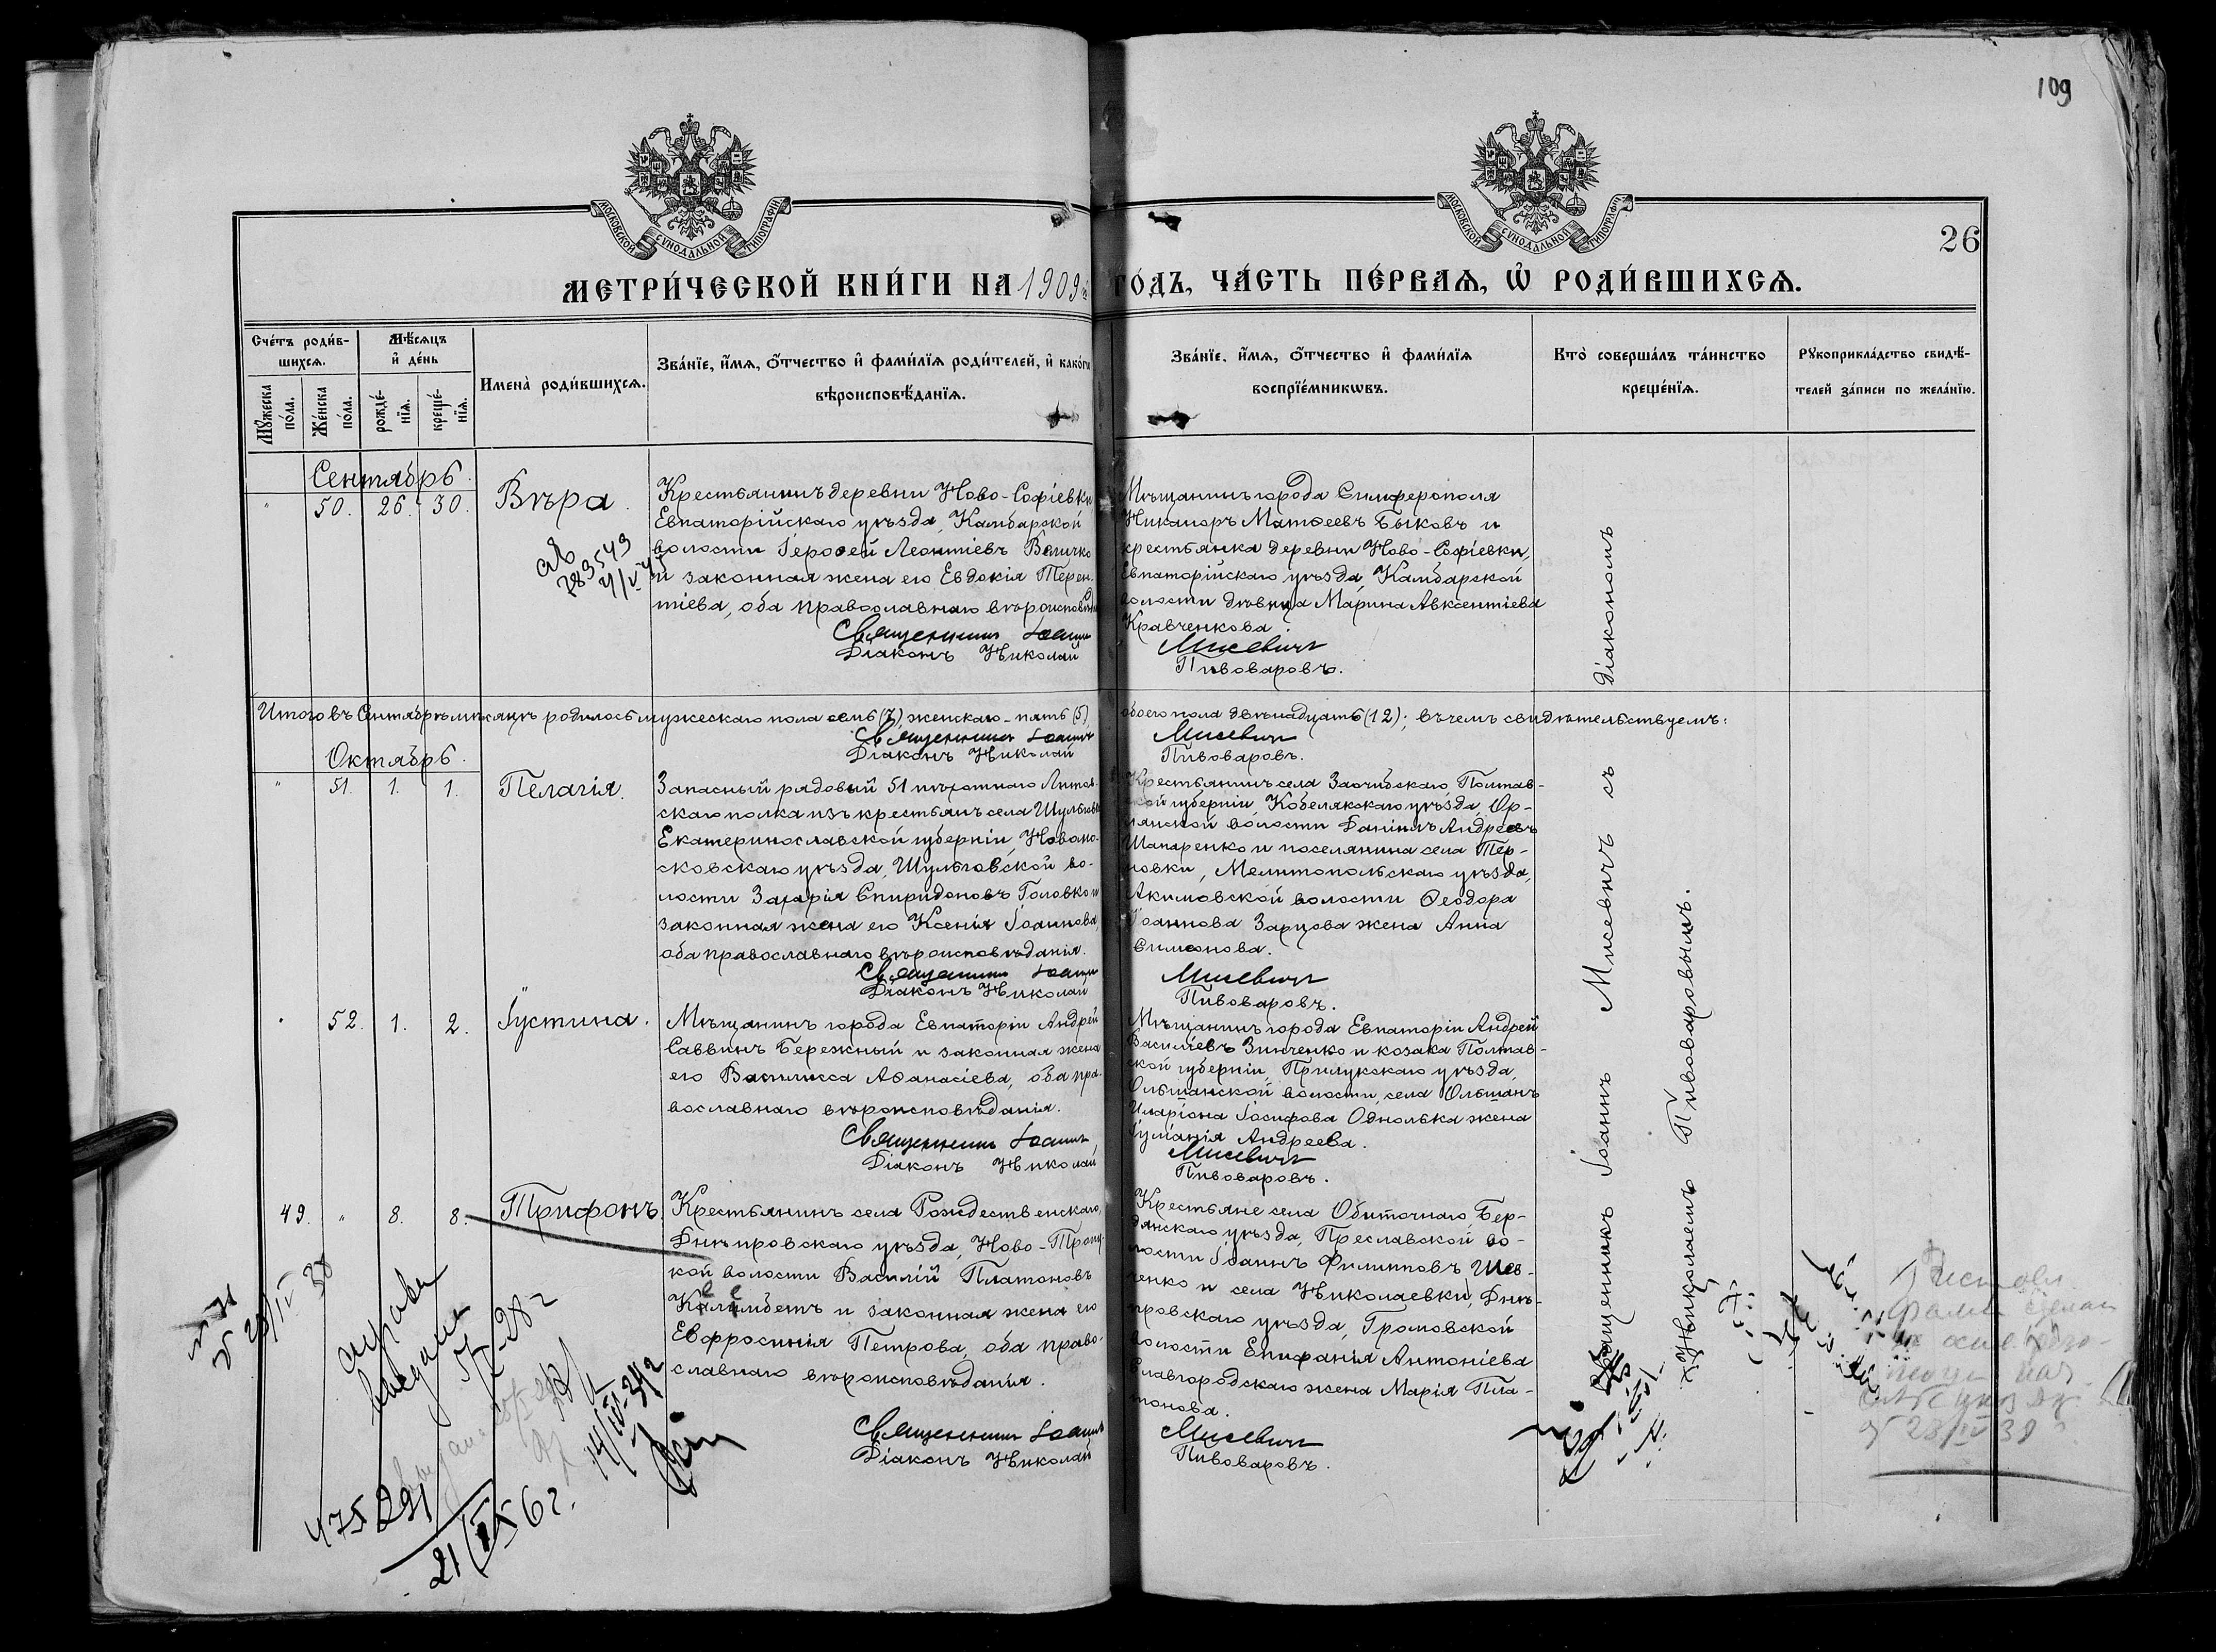 109
МОСКОВСКОЙ СѴНОДАЛЬНОЙ ТИПОГРАФІИ
МОСКОВСКОЙ СѴНОДАЛЬНОЙ ТИПОГРАФІИ
26
МЕТРИ́ЧЕСКОЙ КНИ́ГИ НА 1909 ГО́ДЪ, ЧА́СТЬ ПЕ́РВАѦ, Ѡ РОДИ́ВШИХСѦ.
Сче́тъ роди́в-
шихсѧ.
Мѣ́сѧцъ
и҆ де́нь
Мꙋ́жеска
по́ла.
Же́нска
по́ла.
рожде́-
нїѧ.
креще́-
нїѧ.
Имена̀ роди́вшихсѧ.
Зва́нїе, и҆́мѧ, ѻ҆́тчество и҆ фами́лїѧ роди́телей, и҆ како́гѡ
вѣроисповѣ́данїѧ.
Зва́нїе, и҆́мѧ, ѻ҆́тчество и҆ фами́лїѧ
воспрїе́мникѡвъ.
Кто̀ соверша́лъ та́инство
креще́нїѧ.
Рꙋкоприкла́дство свидѣ́-
телей за́писи по жела́нїю.
Сентябрь.
" 50. 26. 30. Вѣра.
Крестьянинъ деревни Ново-Софіевки
Евпаторійскаго уѣзда, Камбарской
волости Іерофей Леонтіевъ Величко
и законная жена его Евдокія Терен-
тіева, оба православнаго вѣроисповѣд
Священникъ Іоаннъ
Діаконъ Николай
783543
Мѣщанинъ города Симферополя
Никаноръ Матѳеевъ Быковъ и
крестьянка деревни Ново-Софіевки,
Евпаторійскаго уѣзда, Камбарской
волости дѣвица Марина Авксентіева
Кравченкова.
Мисевичъ
Пивоваровъ.
Итого въ Сентябрѣ мѣсяцѣ родилось мужескаго пола семь (7), женскаго - пять (5), обоего пола двѣнадцать (12); въ чемъ свидѣтельствуемъ:
Священникъ Іоаннъ Мисевичъ
Діаконъ Николай Пивоваровъ.
Октябрь.
" 51. 1. 1. Пелагія.
Запасный рядовый 51 пѣхотнаго Литов-
скаго полка изъ крестьянъ села Шульговки
Екатеринославской губерніи, Новомо-
сковскаго уѣзда, Шульговской во-
лости Захарія Спиридоновъ Головко и
законная жена его Ксенія Іоаннова,
оба православнаго вѣроисповѣданія.
Священникъ Іоаннъ
Діаконъ Николай
Крестьянинъ села Полтав-
ской губерніи Кобелякскаго уѣзда, Ор-
лянской волости Даніилъ Андреевъ
Шапаренко и поселянина села Тер-
новки, Мелитопольскаго уѣзда,
Акимовской волости Ѳеодора
Іоаннова Зарцова жена Анна
Симеонова.
Мисевичъ
Пивоваровъ.
" 52. 1. 2. Іустина.
Мѣщанинъ города Евпаторіи Андрей
Саввинъ Бережный и законная жена
его Василисса Аѳанасіева, оба пра-
вославнаго вѣроисповѣданія.
Священникъ Іоаннъ
Діаконъ Николай
Мѣщанинъ города Евпаторіи Андрей
Василіевъ Зинченко и козака Полтав-
ской губерніи, Прилукскаго уѣзда,
Ольшанской волости, села Ольшанъ
Иларіона Іосифова Однолька жена
Іуліанія Андреева.
Мисевичъ
Пивоваровъ.
49. " 8. 8. Трифонъ.
Крестьянинъ села Рождественскаго,
Днѣпровскаго уѣзда, Ново-Троиц-
кой волости Василій Платоновъ
Келембетъ и законная жена его
Евфросинія Петрова, оба право-
славнаго вѣроисповѣданія.
Священникъ Іоаннъ
Діаконъ Николай
Крестьяне села Обиточнаго, Бер-
дянскаго уѣзда, Преславской во-
лости Іоаннъ Филипповъ Шев-
ченко и села Николаевки, Днѣ-
провскаго уѣзда, Громовской
волости Епифанія Антоніева
Славгородскаго жена Марія Пла-
тонова.
Мисевичъ
Пивоваровъ.
Священникъ Іоаннъ Мисевичъ съ діакономъ
Николаемъ Пивоваровымъ.
47529